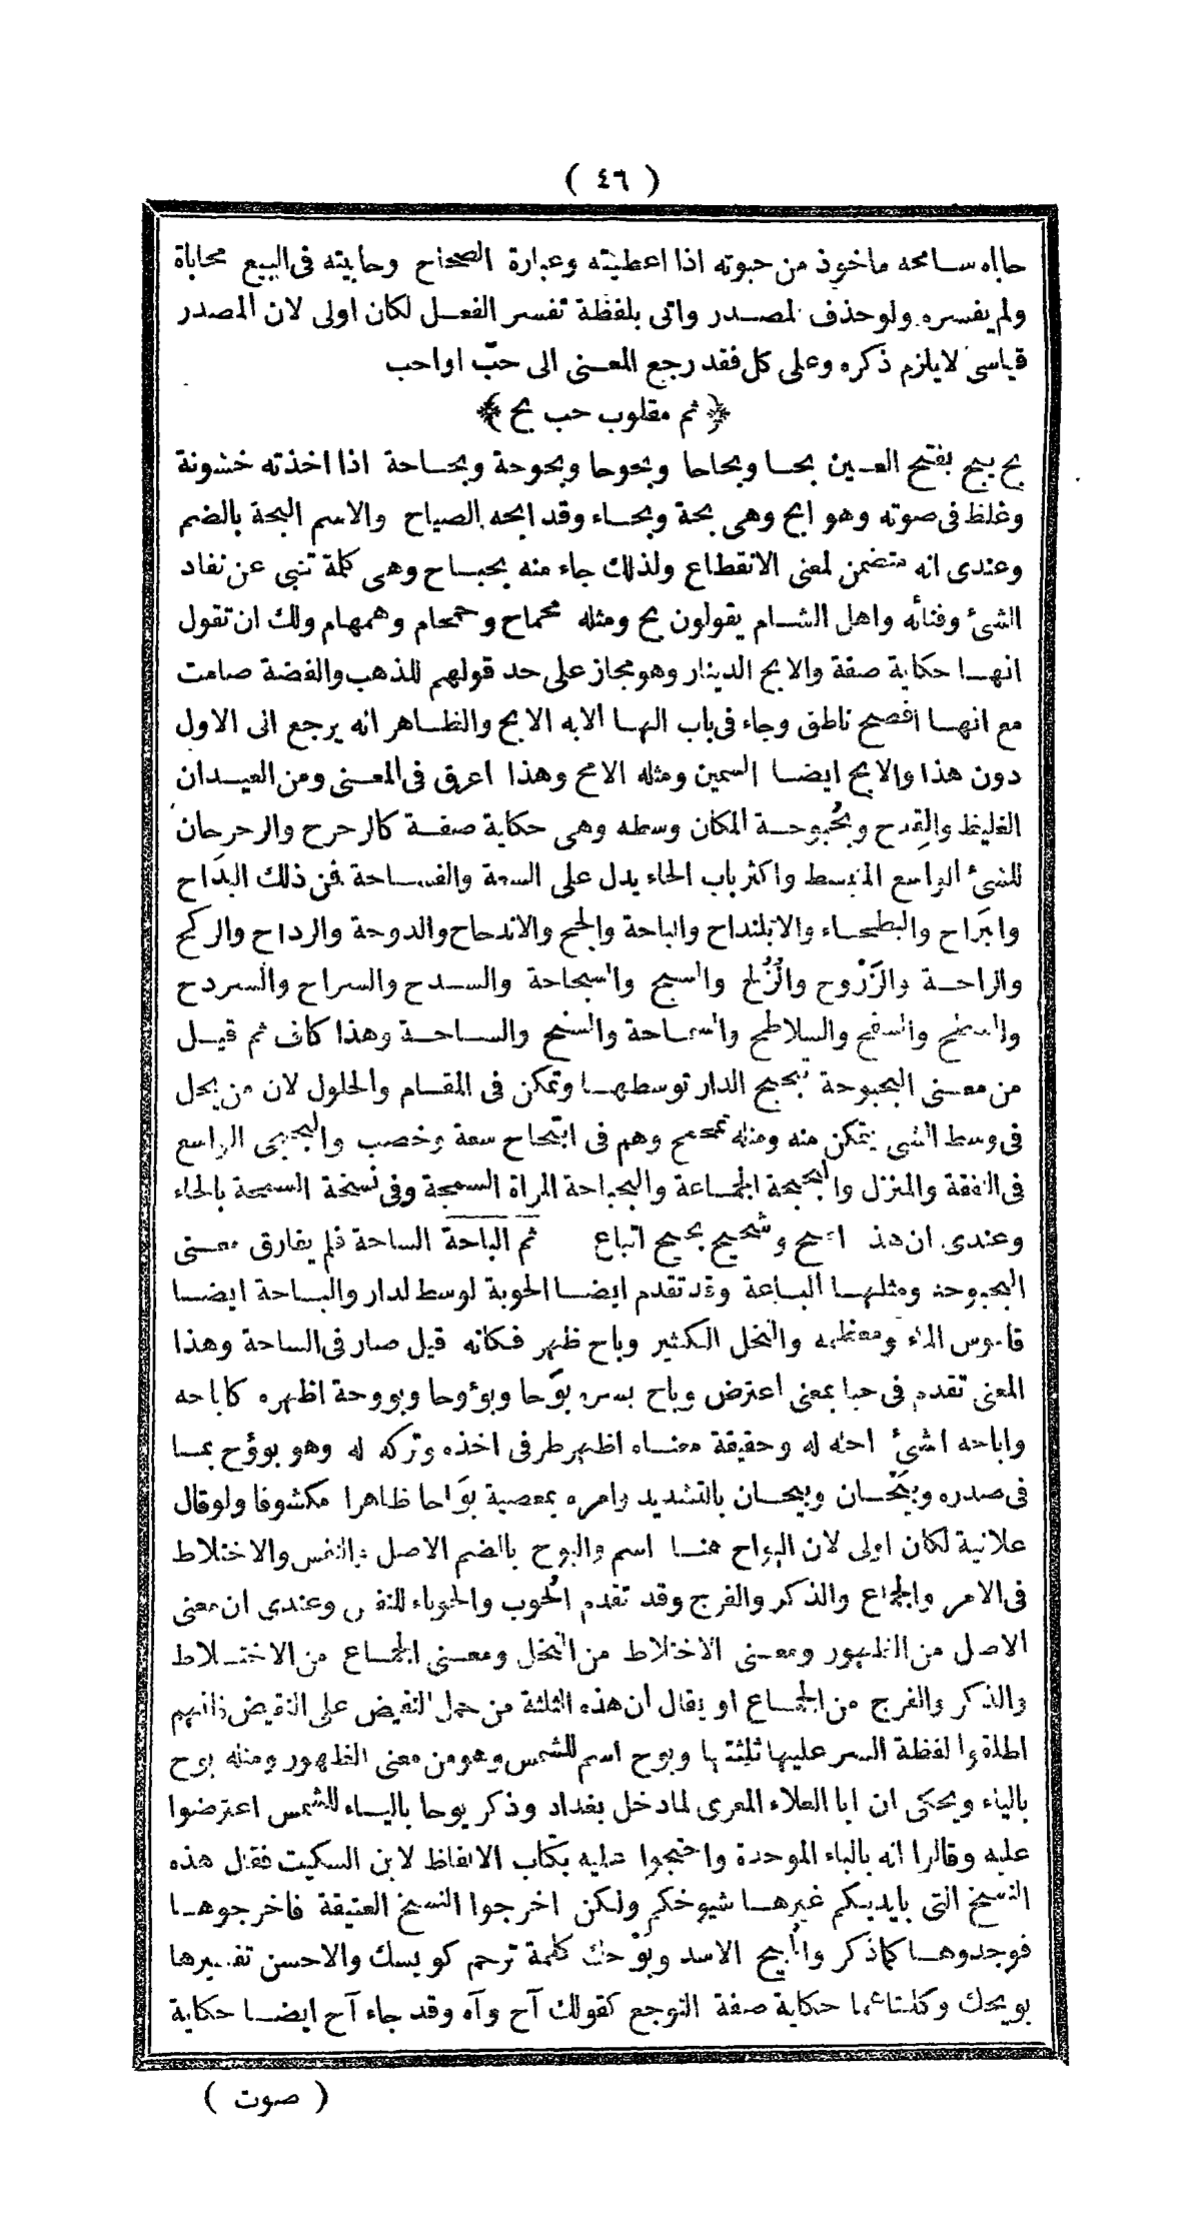 ( ٤٦ )
حاباه سامحه ماخوذ من حبوته اذا اعطيته وعبارة الصحاح وحابيته فى البيع محاباة
ولم يفسره ولو حذف المصدر واتى بلفظة تفسر الفعل لكان اولى لان المصدر
قياسى لايلزم ذكره وعلى كل فقد رجع المعنى الى حبّ او احب
﴿ ثم مقلوب حب بح ﴾
بح يبح بفتح العين بحا وبحاحا وبحوحا وبحوحة وبحاحة اذا اخذته خشونة
وغلظ فى صوته وهو ابح وهى بحة وبحاء وقد ابحه الصياح والاسم البحة بالضم
وعندى انه متضمن لمعنى الانقطاع ولذلك جاء منه بحباح وهى كلمة تنبى عن نفاد
الشئ وفنائه واهل الشام يقولون بح ومثله محماح وحمحام وهمهام ولك ان تقول
انها حكاية صفة والابح الدينار وهو مجاز على حد قولهم للذهب والفضة صامت
مع انهما افصح ناطق وجاء فى باب الها الابه الابح والظاهر انه يرجع الى الاول
دون هذا والابح ايضا السمين ومثله الامح وهذا اعرق فى المعنى ومن العيدان
الغليظ والقِدح وبُحبوحة المكان وسطه وهى حكاية صفة كالرحرح والرحرحان
للشئ الواسع المنبسط واكثر باب الحاء يدل على السعة والفساحة فمن ذلك البدَاح
والبَراح والبطحاء والابلنداح والباحة والجح والاندحاح والدوحة والرداح والركح
والراحة والزَرْوح والزُلُح والسبح والسجاحة والسدح والسراح والسردح
والسطح والسفح والسلاطح والسماحة والسنح والساحة وهذا كاف ثم قيل
من معنى البحبوحة تبحبح الدار توسطها وتمكن فى المقام والحلول لان من يحل
فى وسط الشى يتمكن منه ومثله تمحمح وهم فى ابتحاح سعة وخصب والبحبحى الواسع
فى النفقة والمنزل والبحبحة الجماعة والبحباحة المراة السمجة وفى نسخة السمحة بالحاء
وعندى ان هذا وشحيح بحيح اتباع ثم الباحة الساحة فلم يفارق معنى
البحبوحة ومثلها الباعة وقد تقدم ايضا الحوبة لوسط لدار والباحة ايضا
قاموس الماء ومعظمه والنخل الكثير وباح ظهر فكانه قيل صار فى الساحة وهذا
المعنى تقدم فى حبا بمعنى اعترض وباح بسره بوَحا وبؤوحا وبووحة اظهره كاباحه
واباحه الشئ احله له وحقيقة معناه اظهر طرفى اخذه وتركه له وهو بوؤح بما
فى صدره وبَيْحَان وبيحان بالتشديد وامره بمعصية بوَاحا ظاهرا مكشوفا ولو قال
علانية لكان اولى لان البواح هنا اسم والبوح بالضم الاصل والنفس والاختلاط
فى الامر والجماع والذكر والفرج وقد تقدم الحُوب والحوباء للنفس وعندى ان معنى
الاصل من الظهور ومعنى الاختلاط من النخل ومعنى الجماع من الاختلاط
والذكر والفرج من الجماع او يقال ان هذه الثلثة من حمل النقيض على النقيض فانهم
اطلقوا لفظة السر عليها ثلثتها وبوح اسم للشمس وهو من معنى الظهور ومثله يوح
بالياء ويحكى ان ابا العلاء المعرى لما دخل بغداد وذكر يوحا بالياء للشمس اعترضوا
عليه وقالوا انه بالباء الموحدة واحتجوا عليه بكتاب الالفاظ لابن السكيت فقال هذه
النسخ التى بايديكم غيرها شيوخكم ولكن اخرجوا النسخ العتيقة فاخرجوها
فوجدوها كما ذكر والبيح الاسد وبَوْحك كلمة ترحم كويسك والاحسن تفسيرها
بويحك وكلتاهما حكاية صفة التوجع كقولك آح وآه وقد جاء آح ايضا حكاية
( صوت )